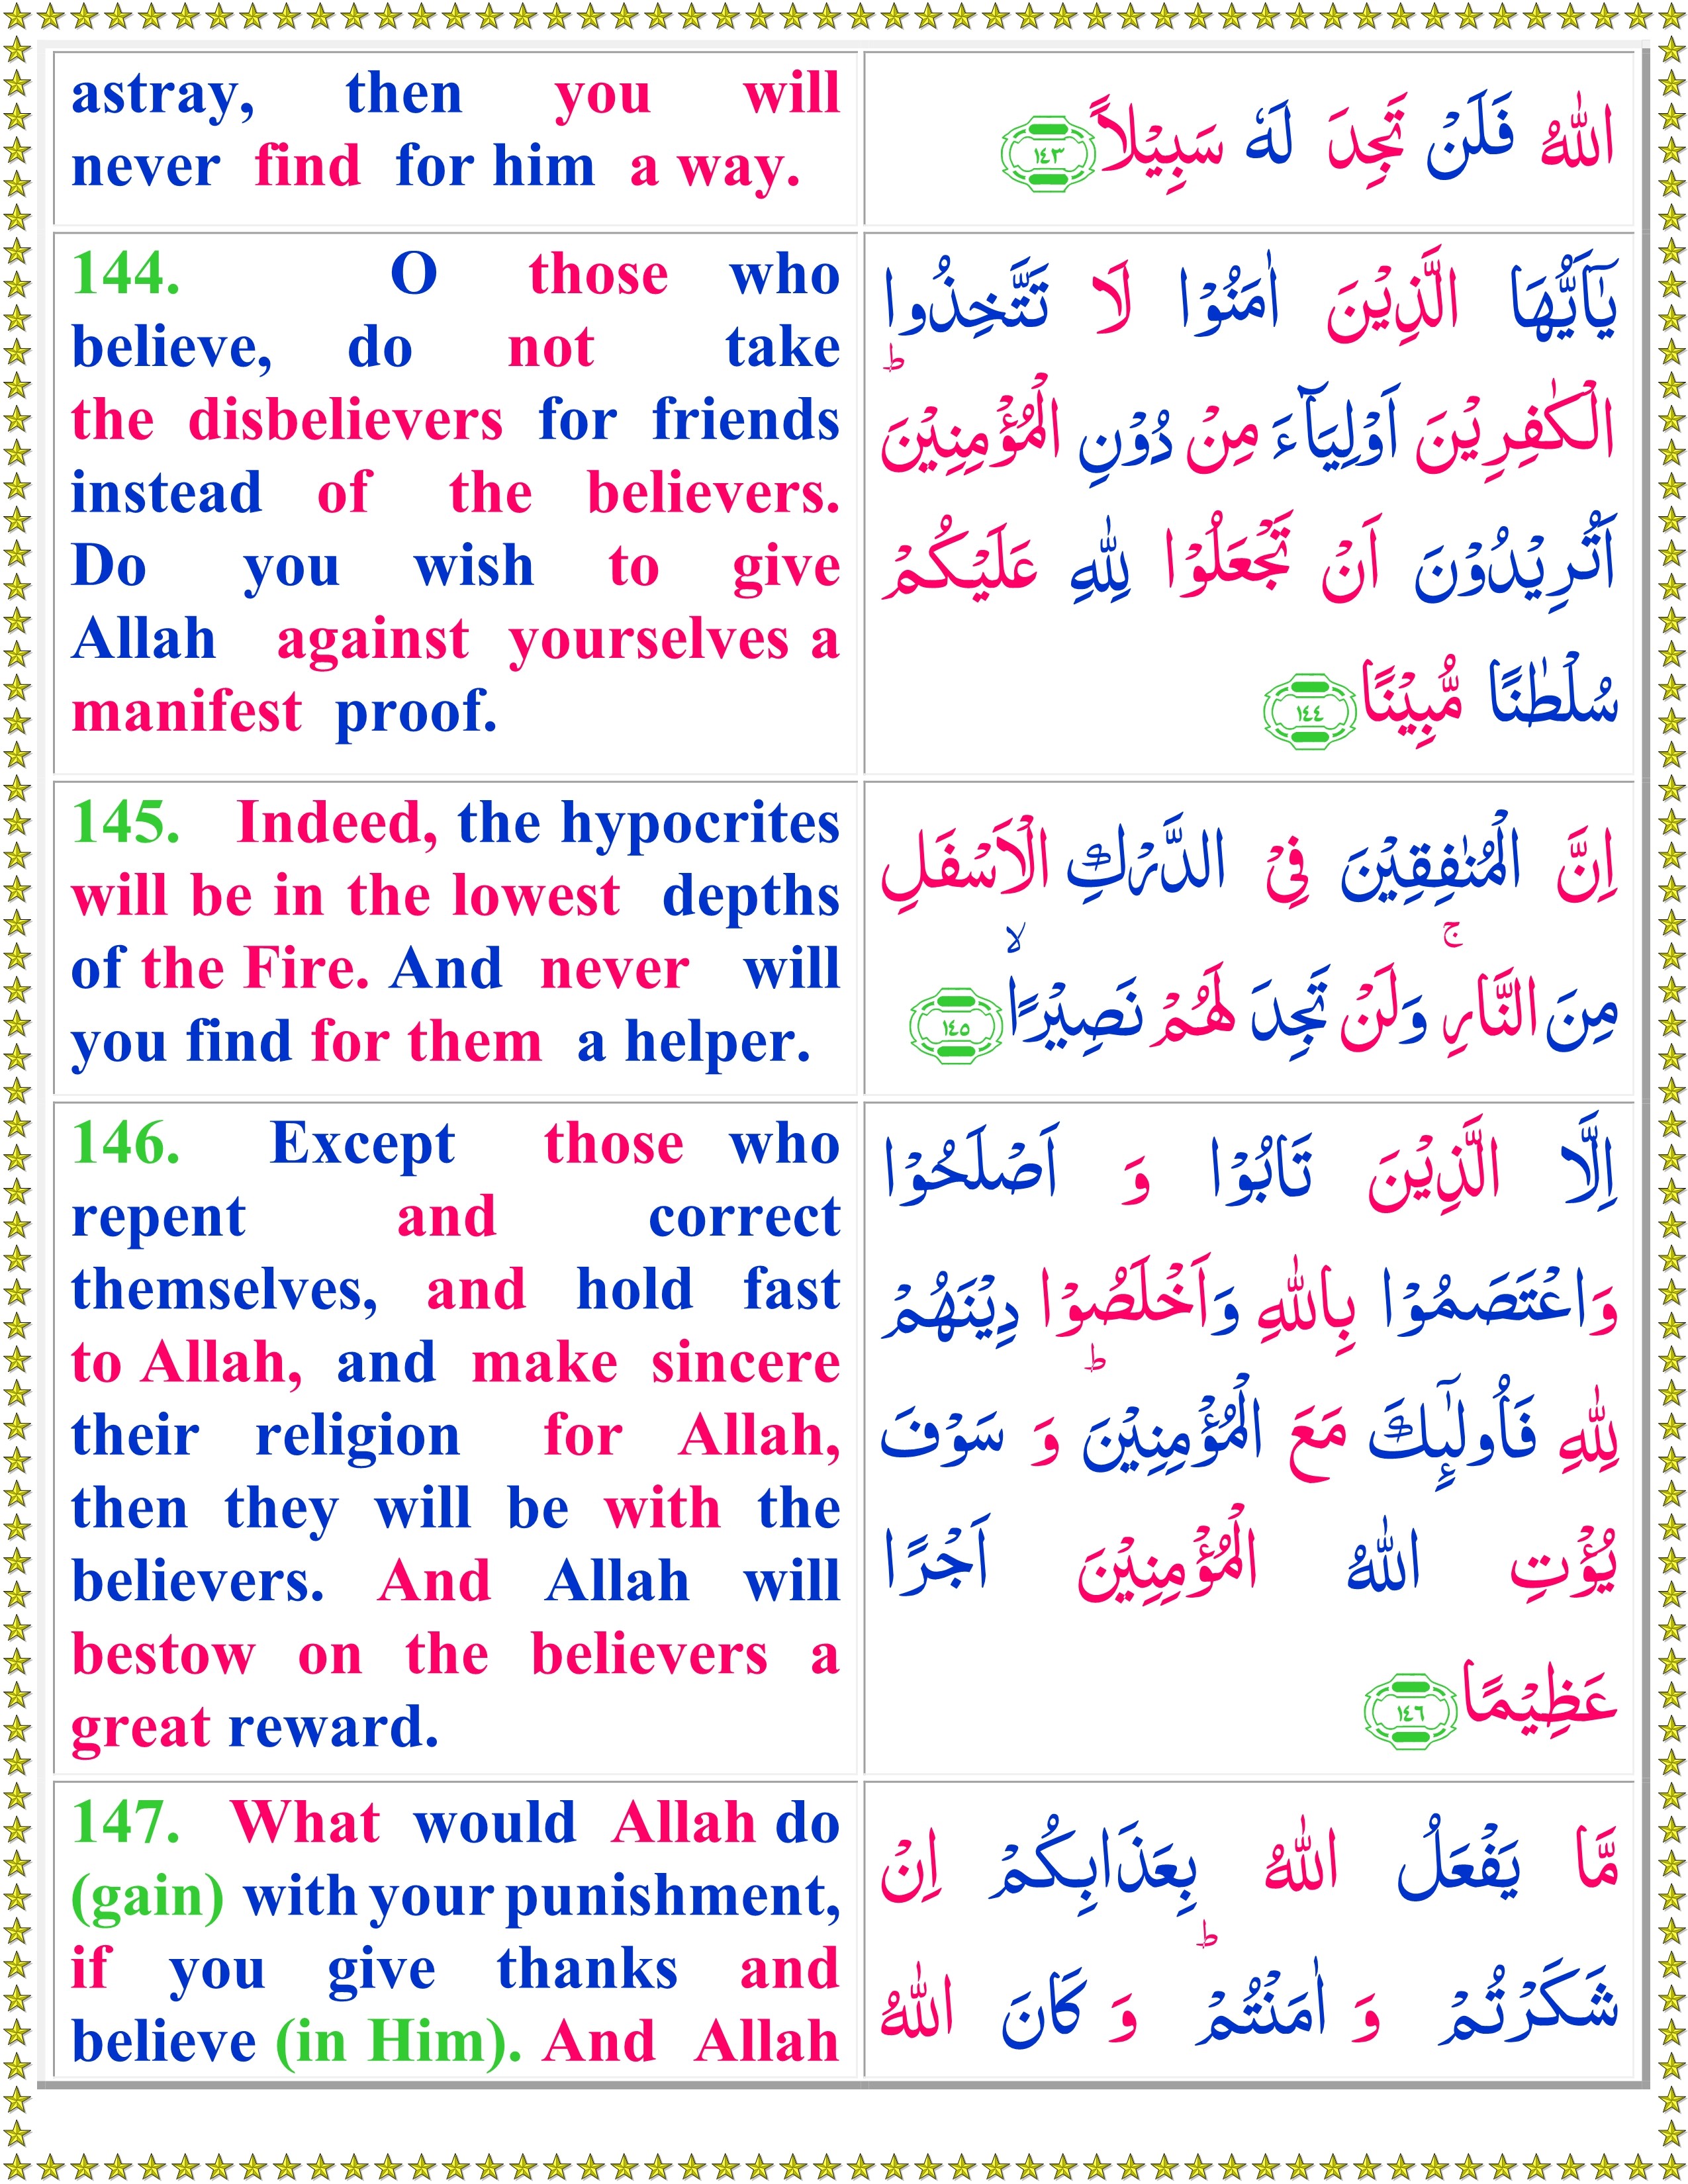 astray, then you will
never find for him a way.
اللّٰهُ فَلَنْ تَجِدَ لَهٗ سَبِيْلًا ﴿١٤٣﴾
144. O those who
believe, do not take
the disbelievers for friends
instead of the believers.
Do you wish to give
Allah against yourselves a
manifest proof.
يٰۤاَيُّهَا الَّذِيْنَ اٰمَنُوْا لَا تَتَّخِذُوا
الْكٰفِرِيْنَ اَوْلِيَآءَ مِنْ دُوْنِ الْمُؤْمِنِيْنَ ؕ
اَتُرِيْدُوْنَ اَنْ تَجْعَلُوْا لِلّٰهِ عَلَيْكُمْ
سُلْطٰنًا مُّبِيْنًا ﴿١٤٤﴾
145. Indeed, the hypocrites
will be in the lowest depths
of the Fire. And never will
you find for them a helper.
اِنَّ الْمُنٰفِقِيْنَ فِى الدَّرْكِ الْاَسْفَلِ
مِنَ النَّارِ ۚ وَلَنْ تَجِدَ لَهُمْ نَصِيْرًا ۙ ﴿١٤٥﴾
146. Except those who
repent and correct
themselves, and hold fast
to Allah, and make sincere
their religion for Allah,
then they will be with the
believers. And Allah will
bestow on the believers a
great reward.
اِلَّا الَّذِيْنَ تَابُوْا وَ اَصْلَحُوْا
وَاعْتَصَمُوْا بِاللّٰهِ وَاَخْلَصُوْا دِيْنَهُمْ
لِلّٰهِ فَاُولٰٓٮِٕكَ مَعَ الْمُؤْمِنِيْنَ ؕ وَ سَوْفَ
يُؤْتِ اللّٰهُ الْمُؤْمِنِيْنَ اَجْرًا
عَظِيْمًا ﴿١٤٦﴾
147. What would Allah do
(gain) with your punishment,
if you give thanks and
believe (in Him). And Allah
مَّا يَفْعَلُ اللّٰهُ بِعَذَابِكُمْ اِنْ
شَكَرْتُمْ وَ اٰمَنْتُمْ ؕ وَ كَانَ اللّٰهُ